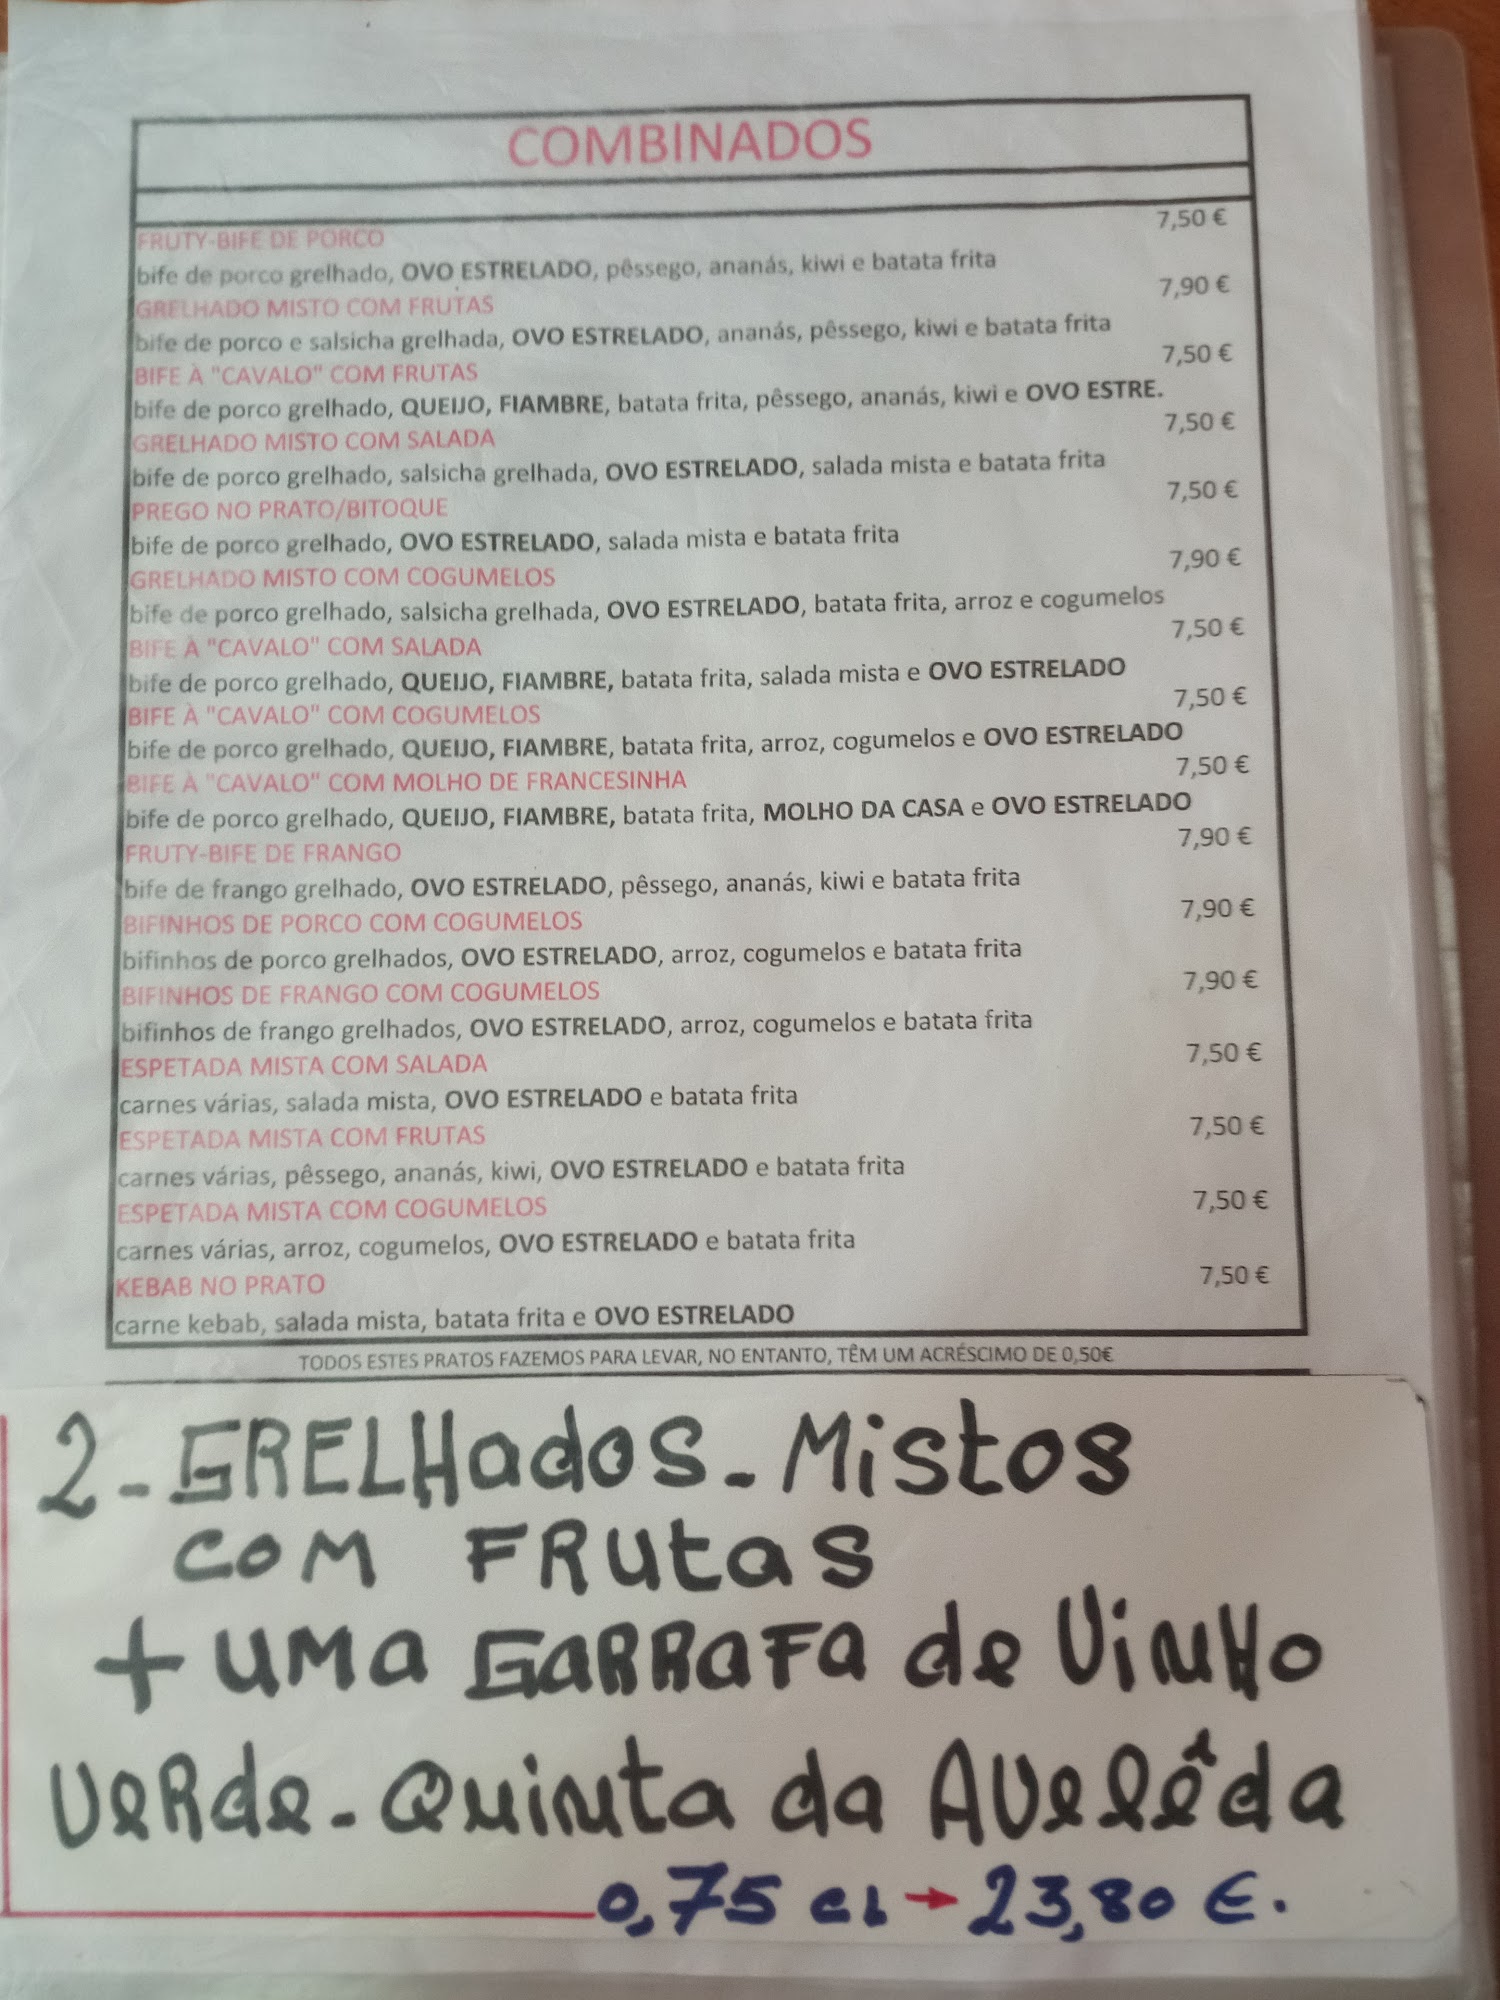 COMBINADOS
FRUTY-BIFE DE PORCO 7,50 €
bife de porco grelhado, OVO ESTRELADO, pêssego, ananás, kiwi e batata frita
GRELHADO MISTO COM FRUTAS 7,90 €
bife de porco e salsicha grelhada, OVO ESTRELADO, ananás, pêssego, kiwi e batata frita
BIFE À "CAVALO" COM FRUTAS 7,50 €
bife de porco grelhado, QUEIJO, FIAMBRE, batata frita, pêssego, ananás, kiwi e OVO ESTRE.
GRELHADO MISTO COM SALADA 7,50 €
bife de porco grelhado, salsicha grelhada, OVO ESTRELADO, salada mista e batata frita
PREGO NO PRATO/BITOQUE 7,50 €
bife de porco grelhado, OVO ESTRELADO, salada mista e batata frita
GRELHADO MISTO COM COGUMELOS 7,90 €
bife de porco grelhado, salsicha grelhada, OVO ESTRELADO, batata frita, arroz e cogumelos
BIFE À "CAVALO" COM SALADA 7,50 €
bife de porco grelhado, QUEIJO, FIAMBRE, batata frita, salada mista e OVO ESTRELADO
BIFE À "CAVALO" COM COGUMELOS 7,50 €
bife de porco grelhado, QUEIJO, FIAMBRE, batata frita, arroz, cogumelos e OVO ESTRELADO
BIFE À "CAVALO" COM MOLHO DE FRANCESINHA 7,50 €
bife de porco grelhado, QUEIJO, FIAMBRE, batata frita, MOLHO DA CASA e OVO ESTRELADO
FRUTY-BIFE DE FRANGO 7,90 €
bife de frango grelhado, OVO ESTRELADO, pêssego, ananás, kiwi e batata frita
BIFINHOS DE PORCO COM COGUMELOS 7,90 €
bifinhos de porco grelhados, OVO ESTRELADO, arroz, cogumelos e batata frita
BIFINHOS DE FRANGO COM COGUMELOS 7,90 €
bifinhos de frango grelhados, OVO ESTRELADO, arroz, cogumelos e batata frita
ESPETADA MISTA COM SALADA 7,50 €
carnes várias, salada mista, OVO ESTRELADO e batata frita
ESPETADA MISTA COM FRUTAS 7,50 €
carnes várias, pêssego, ananás, kiwi, OVO ESTRELADO e batata frita
ESPETADA MISTA COM COGUMELOS 7,50 €
carnes várias, arroz, cogumelos, OVO ESTRELADO e batata frita
KEBAB NO PRATO 7,50 €
carne kebab, salada mista, batata frita e OVO ESTRELADO
TODOS ESTES PRATOS FAZEMOS PARA LEVAR, NO ENTANTO, TÊM UM ACRÉSCIMO DE 0,50€
2-GRELHadoS-Mistos
COM FRUtas
+ UMA GARRAFA de VinHo
VeRde-Quinta da Avelêda
0,75 cl → 23,80 €.